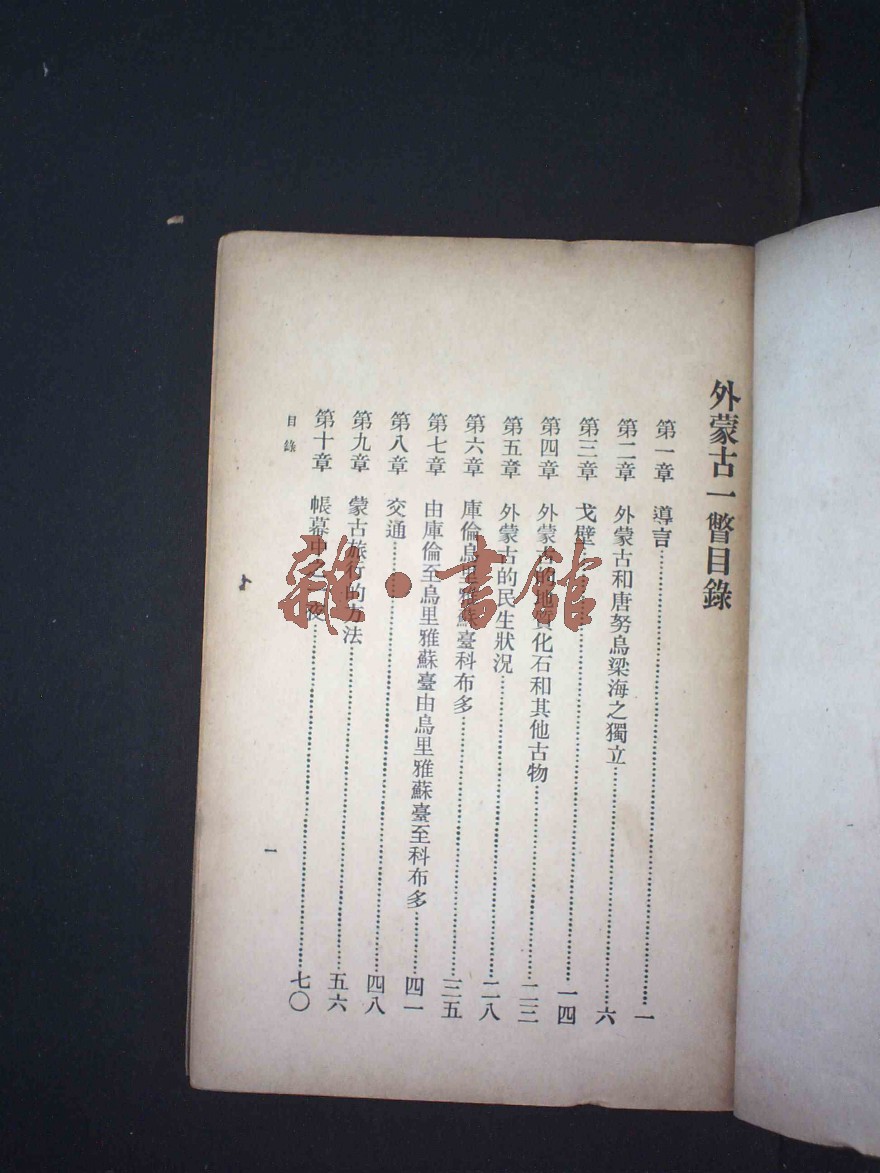 外蒙古一瞥目錄
第一章 導言……一
第二章 外蒙古和唐努烏梁海之獨立……六
第三章 戈壁……一四
第四章 外蒙古的地質化石和其他古物……二三
第五章 外蒙古的民生狀況……二八
第六章 庫倫烏里雅蘇臺科布多……三五
第七章 由庫倫至烏里雅蘇臺由烏里雅蘇臺至科布多……四一
第八章 交通……四八
第九章 蒙古旅行的方法……五六
第十章 帳幕中一夜……七〇
目錄
一
雜·書館